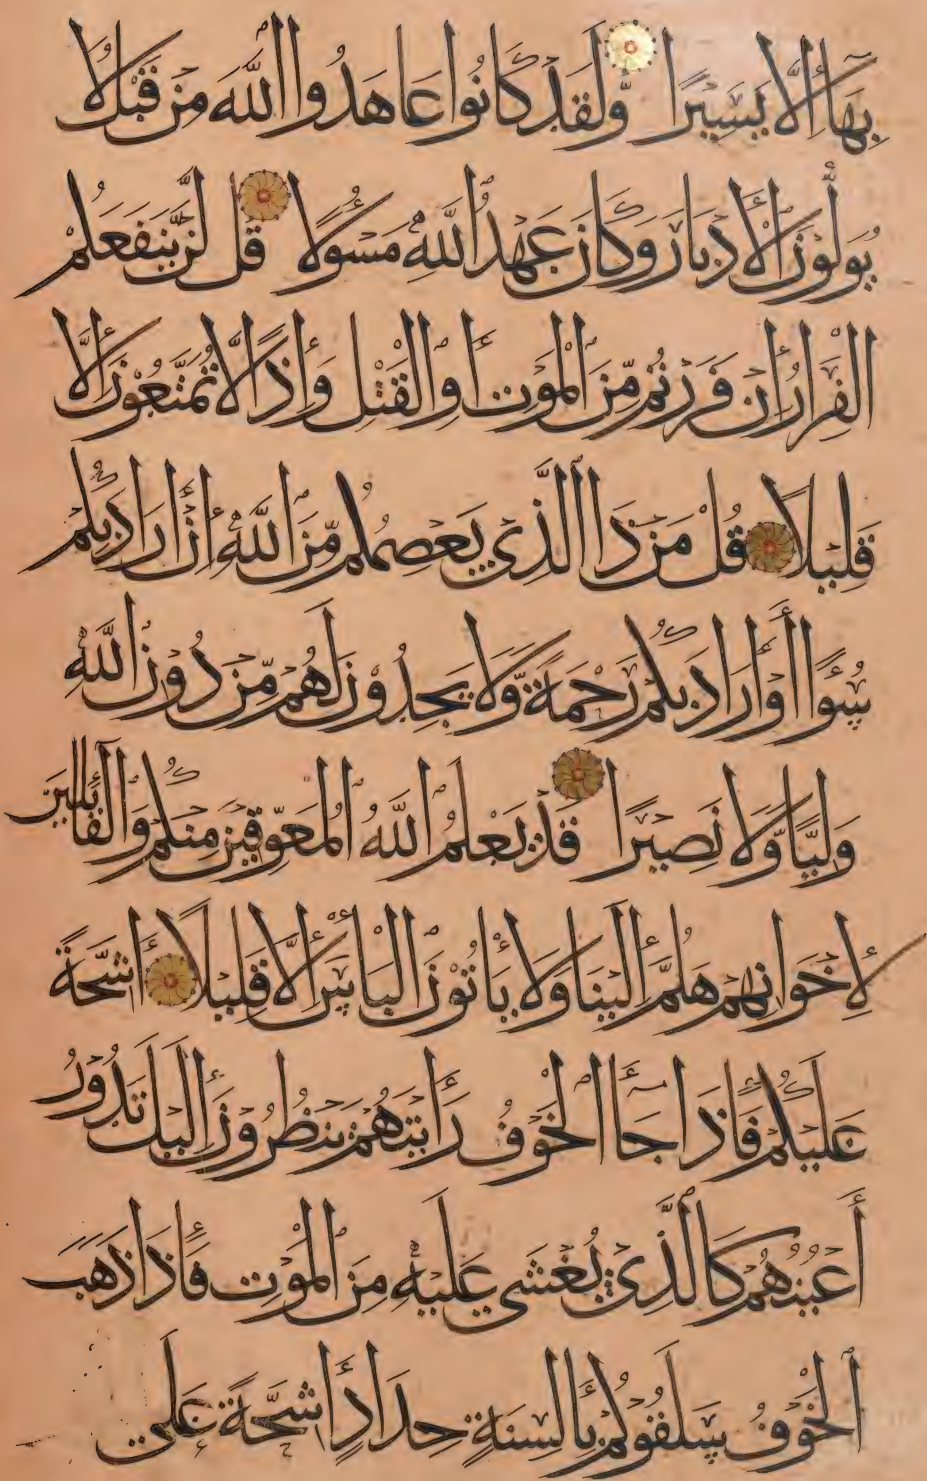 بِهَا إِلَّا يَسِيرًا وَلَقَدْ كَانُوا عَاهَدُوا اللَّهَ مِنْ قَبْلُ لَا
يُوَلُّونَ الْأَدْبَارَ وَكَانَ عَهْدُ اللَّهِ مَسْئُولًا قُلْ لَنْ يَنْفَعَكُمُ
الْفِرَارُ إِنْ فَرَرْتُمْ مِنَ الْمَوْتِ أَوِ الْقَتْلِ وَإِذًا لَا تُمَتَّعُونَ إِلَّا
قَلِيلًا قُلْ مَنْ ذَا الَّذِي يَعْصِمُكُمْ مِنَ اللَّهِ إِنْ أَرَادَ بِكُمْ
سُوءًا أَوْ أَرَادَ بِكُمْ رَحْمَةً وَلَا يَجِدُونَ لَهُمْ مِنْ دُونِ اللَّهِ
وَلِيًّا وَلَا نَصِيرًا قَدْ يَعْلَمُ اللَّهُ الْمُعَوِّقِينَ مِنْكُمْ وَالْقَائِلِينَ
لِإِخْوَانِهِمْ هَلُمَّ إِلَيْنَا وَلَا يَأْتُونَ الْبَأْسَ إِلَّا قَلِيلًا أَشِحَّةً
عَلَيْكُمْ فَإِذَا جَاءَ الْخَوْفُ رَأَيْتَهُمْ يَنْظُرُونَ إِلَيْكَ تَدُورُ
أَعْيُنُهُمْ كَالَّذِي يُغْشَى عَلَيْهِ مِنَ الْمَوْتِ فَإِذَا ذَهَبَ
الْخَوْفُ سَلَقُوكُمْ بِأَلْسِنَةٍ حِدَادٍ أَشِحَّةً عَلَى